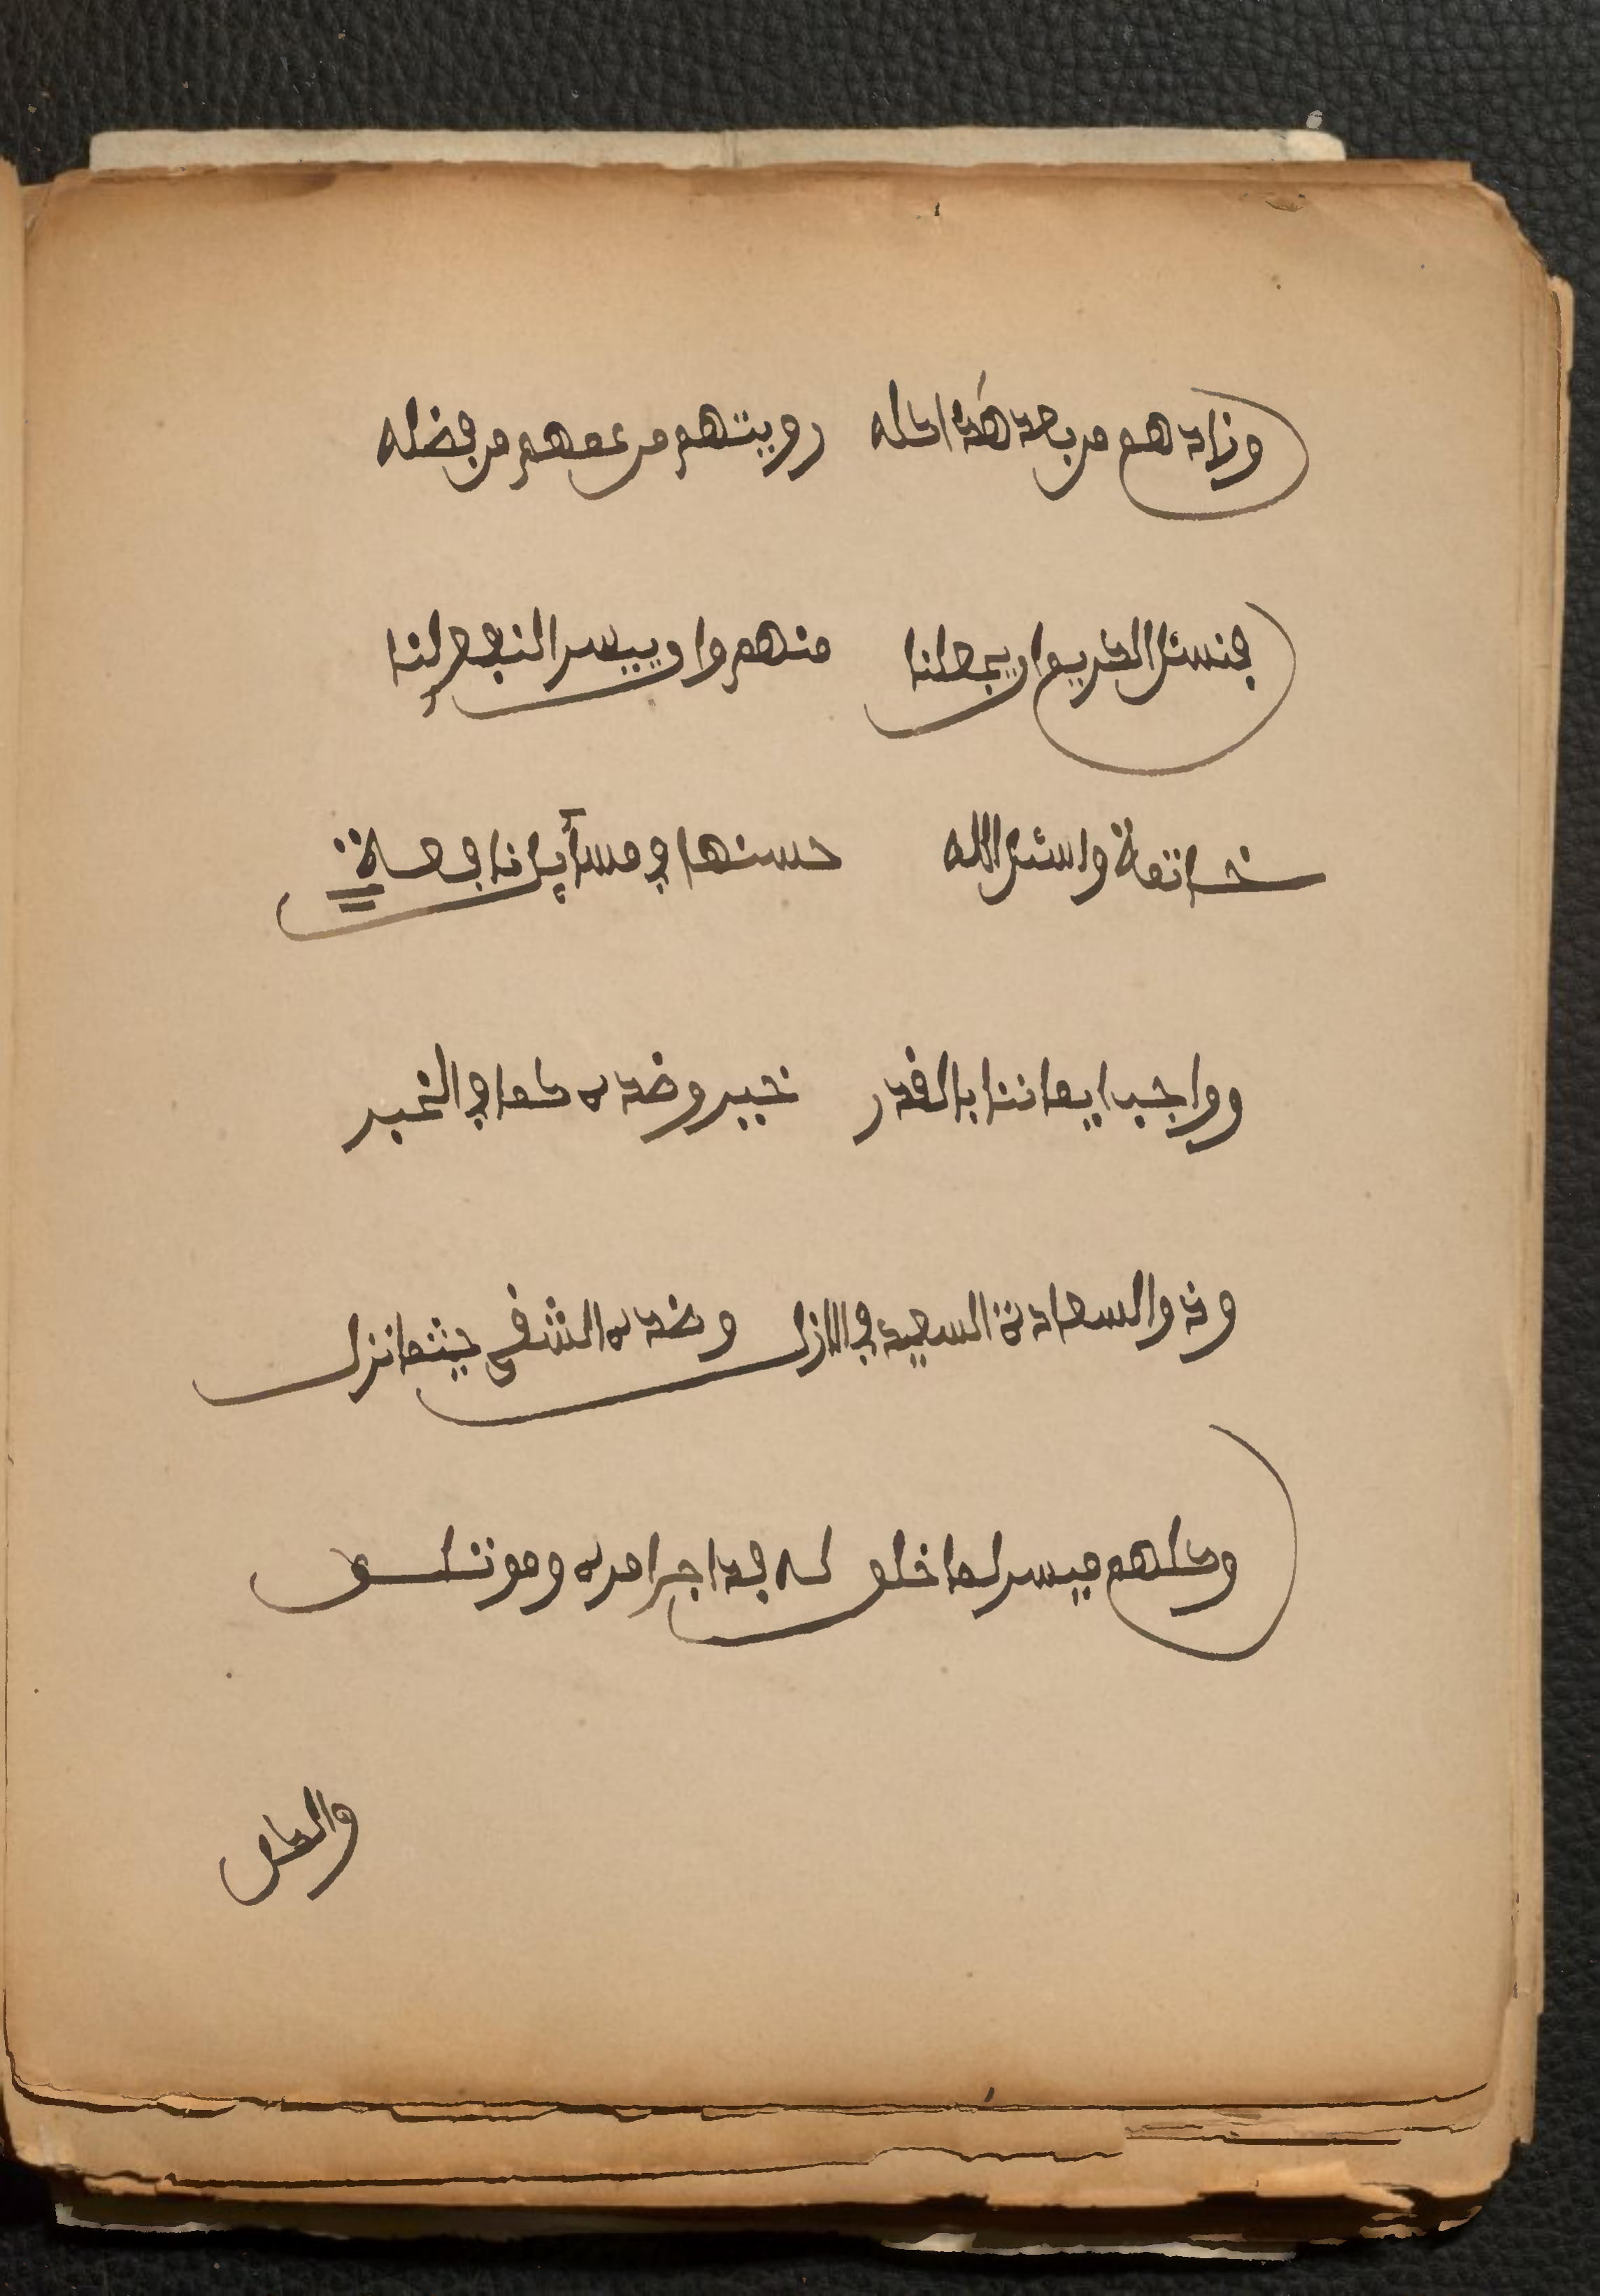 وزادهم من بعد هذا كله رويتهم من عمهم من فضله
فنسئل الكريم ان يجعلنا منهم وان ييسر النفع لنا
خاتمة واسئل الله حسنها في مسآيل نافعة
وواجب ايماننا بالقدر خير وضده كما في الخبر
وذو السعادة السعيد في الازل وضده الشقي حيثما نزل
وكلهم ميسر لما خلق له فداجر امره وموتلق
والكل